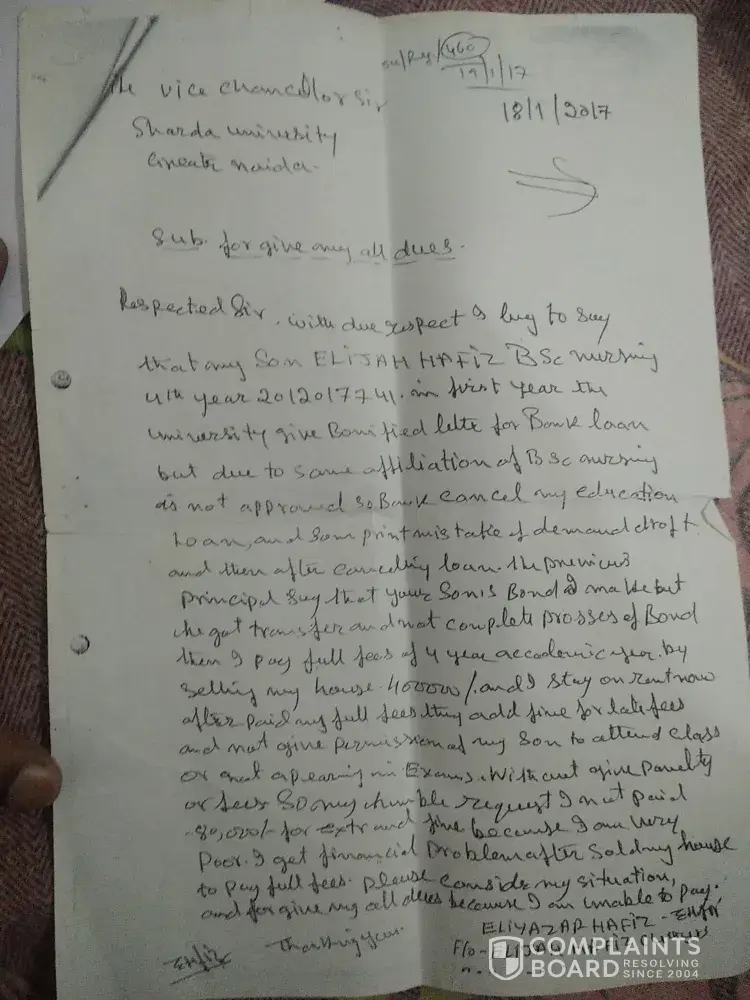 su/Reg/460
19/1/17
The vice chancellor sir
18/1/2017
Sharda university
Greater noida.
Sub. for give my all dues.
Respected Sir. with due respect I beg to say
that my Son ELIJAH HAFIZ BSc nursing
4th year 2012017741. in first year the
university give Bonified lette for Bank loan
but due to some affiliation of BSc nursing
is not approved so Bank cancel my education
Loan, and som print mistake of demand droft
and then after canceling loan. the previous
principal say that your Son's Bond I make but
he got transfer and not complete prosses of Bond
then I pay full fees of 4 year accademic year. by
selling my house 400000/. and I stay on rent now
after paid my full fees they add fine for late fees
and not give permission of my Son to attend class
or not apearing in Exams. Without give panelty
or fees so my humble request I not paid
80,000/- for extr and fine because I am very
Poor. I get financial problem after sold my house
to pay full fees. please conside my situation,
and forgive my all dues because I am unable to pay.
ELIYAZAR HAFIZ -
Thanking you.
F/o - ELIJAH HAFIZ
COMPLAINTS
BOARD
RESOLVING
SINCE 2004